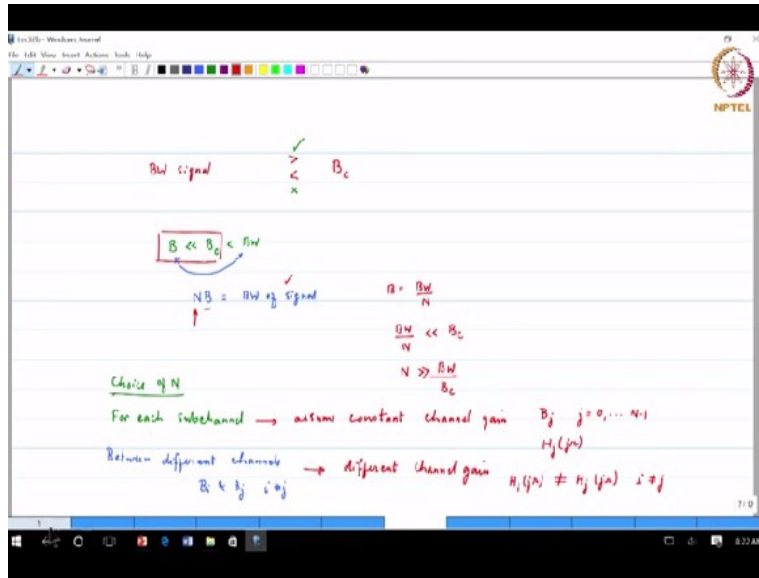 Windows Journal
File Edit View Insert Actions Tools Help
NPTEL
BW signal > < × B_c
B << B_c < BW
NB = BW of signal
B = BW/N
BW/N << B_c
N >> BW/B_c
Choice of N
For each subchannel → assume constant channel gain B_j j = 0, ... N-1
H_j(jΩ)
Between different channels → different channel gain H_i(jΩ) ≠ H_j(jΩ) i ≠ j
B_i & B_j i ≠ j
1
8:22 AM